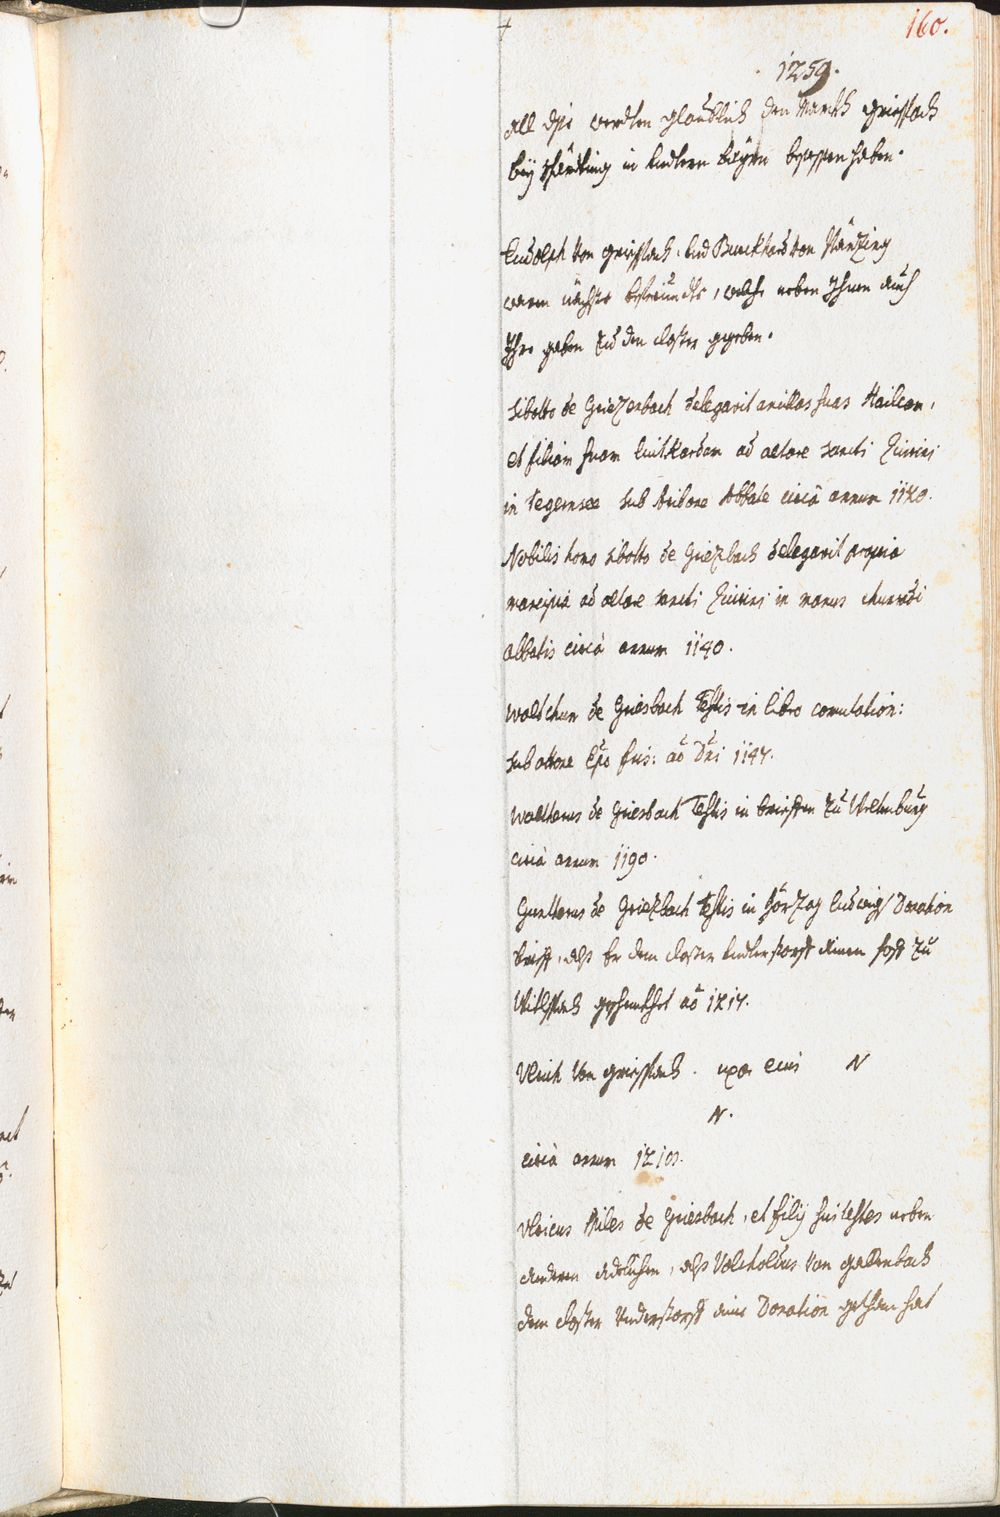 160.
1259.
All dise werdten glaublich den Marckh Griesspach
bey Schärding in Undtern Bayrn besessen haben.
Rudolph von Griesspach, und Burckhard von
waren nächste befreundte, welche neben Ihnen auch
Ihre gaben zu den closter gegeben.
Sibotto de Griezenbach delegavit ancillas suas Hailcam,
et filiam suam Liutkardam ad altare sancti Quirini
in Tegernsee sub Aribone Abbate circà annum 1120.
Nobilis homo Sibotto de Griezbach delegavit propria
mancipia ad altare sancti Quirini in manus chunradi
abbatis circà annum 1140.
Waltchun de Griesbach Testis in libro comutation:
sub ottone Epo fris: aõ Dni 1147.
Waltherus de Griesbach Testis in brieffen zu Weltenburg
circà annum 1190.
Gualterus de Griezbach Testis in Hörzog Ludwigs Donation
brieff, alss Er dem closter Undterstorff einen hoff zu
geschenkhet aõ 1217.
Ulrich von Griesspach. uxor eius N
N.
circà annum 1210.
Ulricus Miles de Griesbach, et filij sui testes neben
anderen adelichen, alss Volcholdus von
dem closter Understorff eine Donation gethan hat